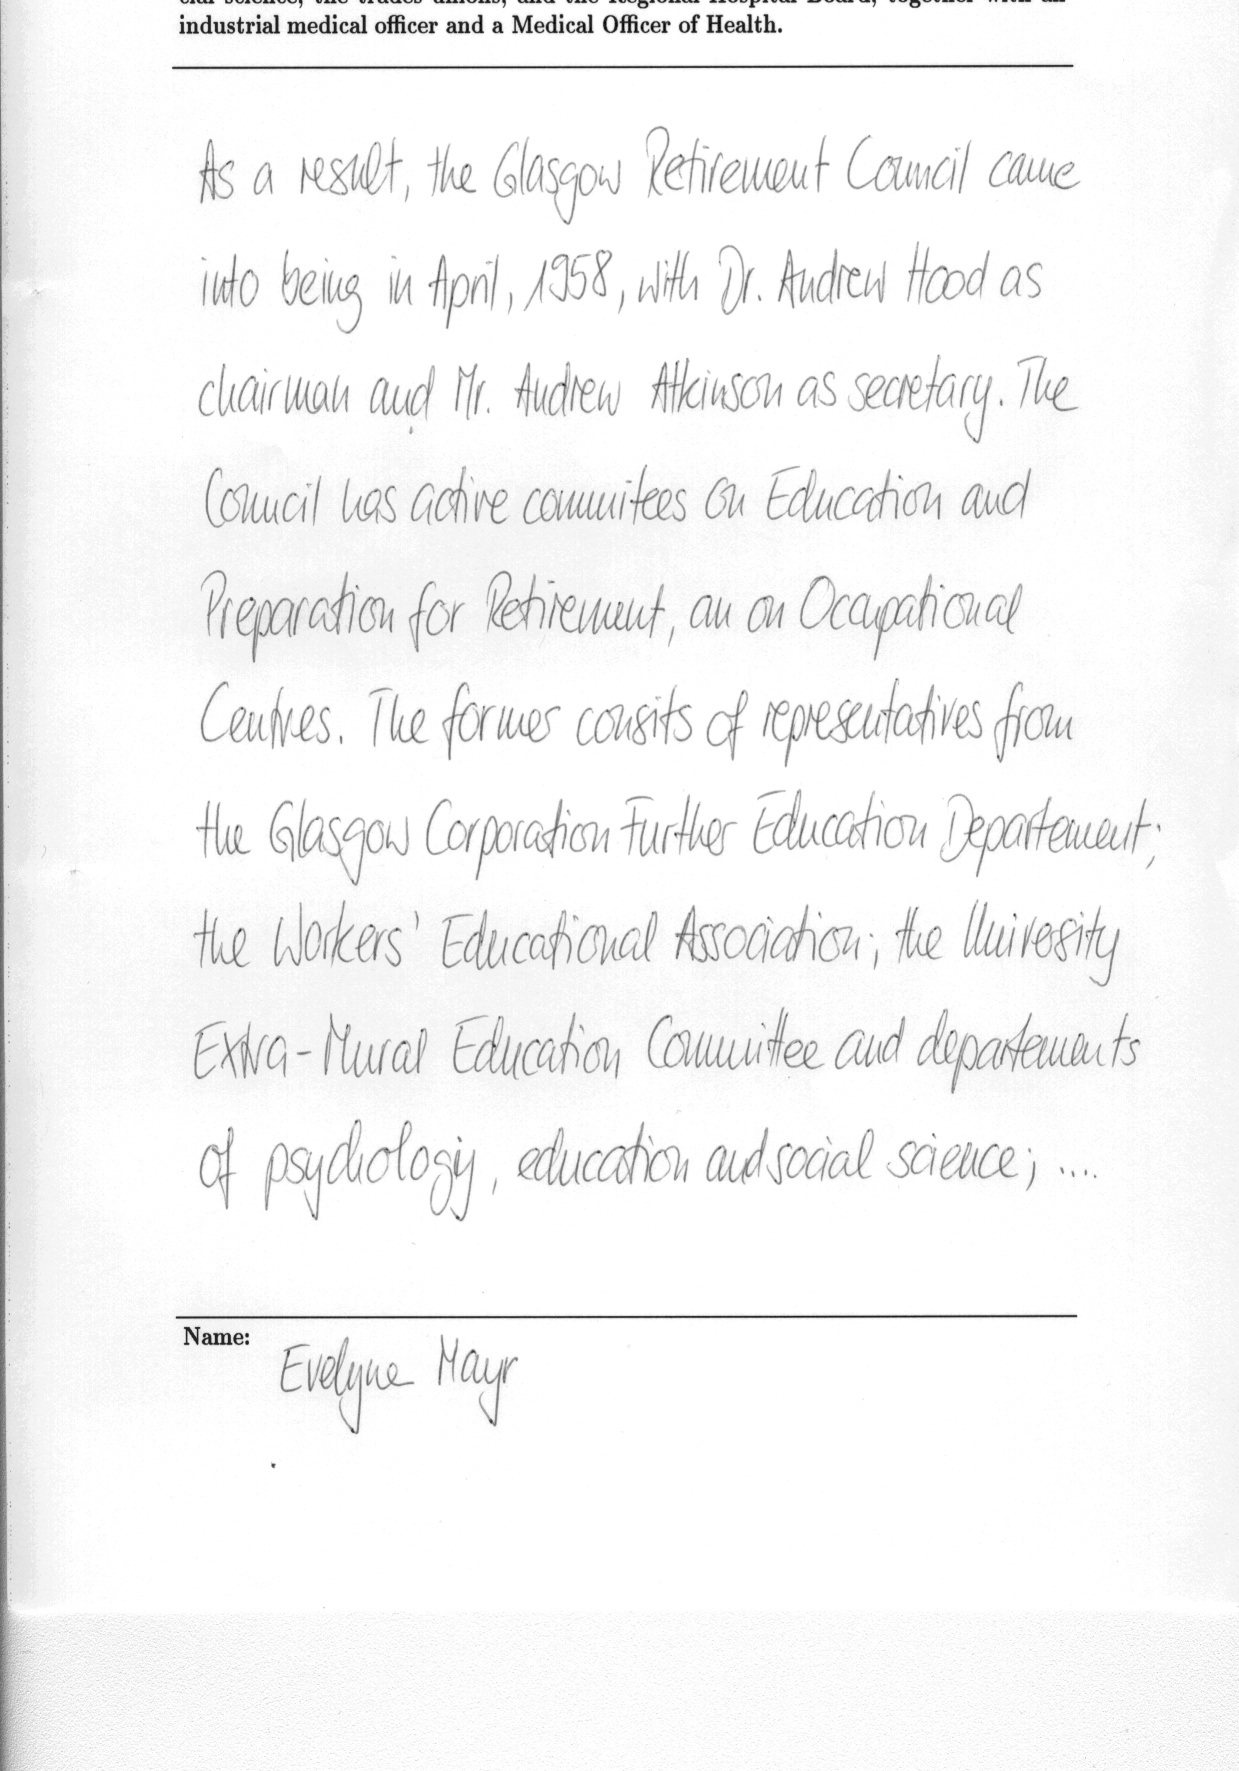 cial science, the trades unions, and the Regional Hospital Board, together with an
industrial medical officer and a Medical Officer of Health.
As a result, the Glasgow Retirement Council came
into being in April, 1958, with Dr. Andrew Hood as
chairman and Mr. Andrew Atkinson as secretary. The
Council has active commitees on Education and
Preparation for Retirement, an on Occupational
Centres. The former consits of representatives from
the Glasgow Corporation Further Education Departement;
the Workers' Educational Association; the Univesity
Extra-Mural Education Committee and departements
of psychology, education and social science; ....
Name:
Evelyne Mayr